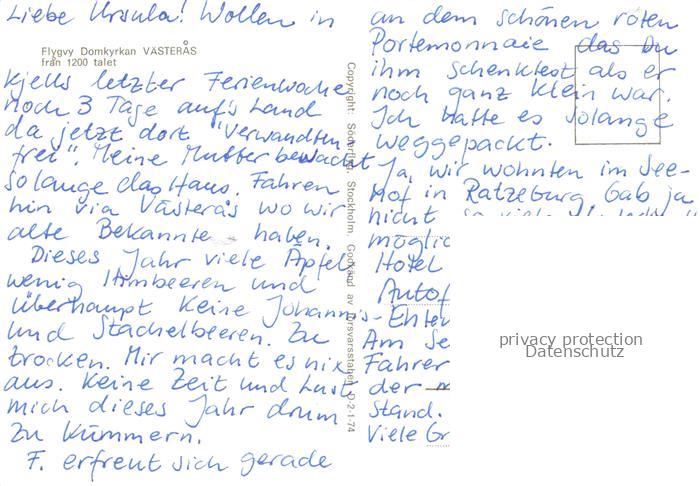 Liebe Ursula! Wollen in
Flygvy Domkyrkan VÄSTERÅS
från 1200 talet
Kjells letzter Ferienwoche
noch 3 Tage auf's Land
da jetzt dort "Verwandten
frei". Meine Mutter bewacht
solange das Haus. Fahren
hin via Västerås wo wir
alte Bekannte haben.
Dieses Jahr viele Äpfel
wenig Himbeeren und
überhaupt keine Johannis-
und Stachelbeeren. Zu
trocken. Mir macht es nix
aus. Keine Zeit und Lust
mich dieses Jahr drum
zu kümmern.
F. erfreut sich gerade
Copyright: Stockholm. Godkänd av D-2-1-74
an dem schönen roten
Portemonnaie das Du
ihm schenktest als er
noch ganz klein war.
Ich hatte es solange
weggepackt.
Ja, wir wohnten im See-
hof in Ratzeburg. Gab ja
nicht so viele
möglic
Hotel
Autof
Enten
Am Se
Fahrer
der
Stand.
Viele Gr
privacy protection
Datenschutz